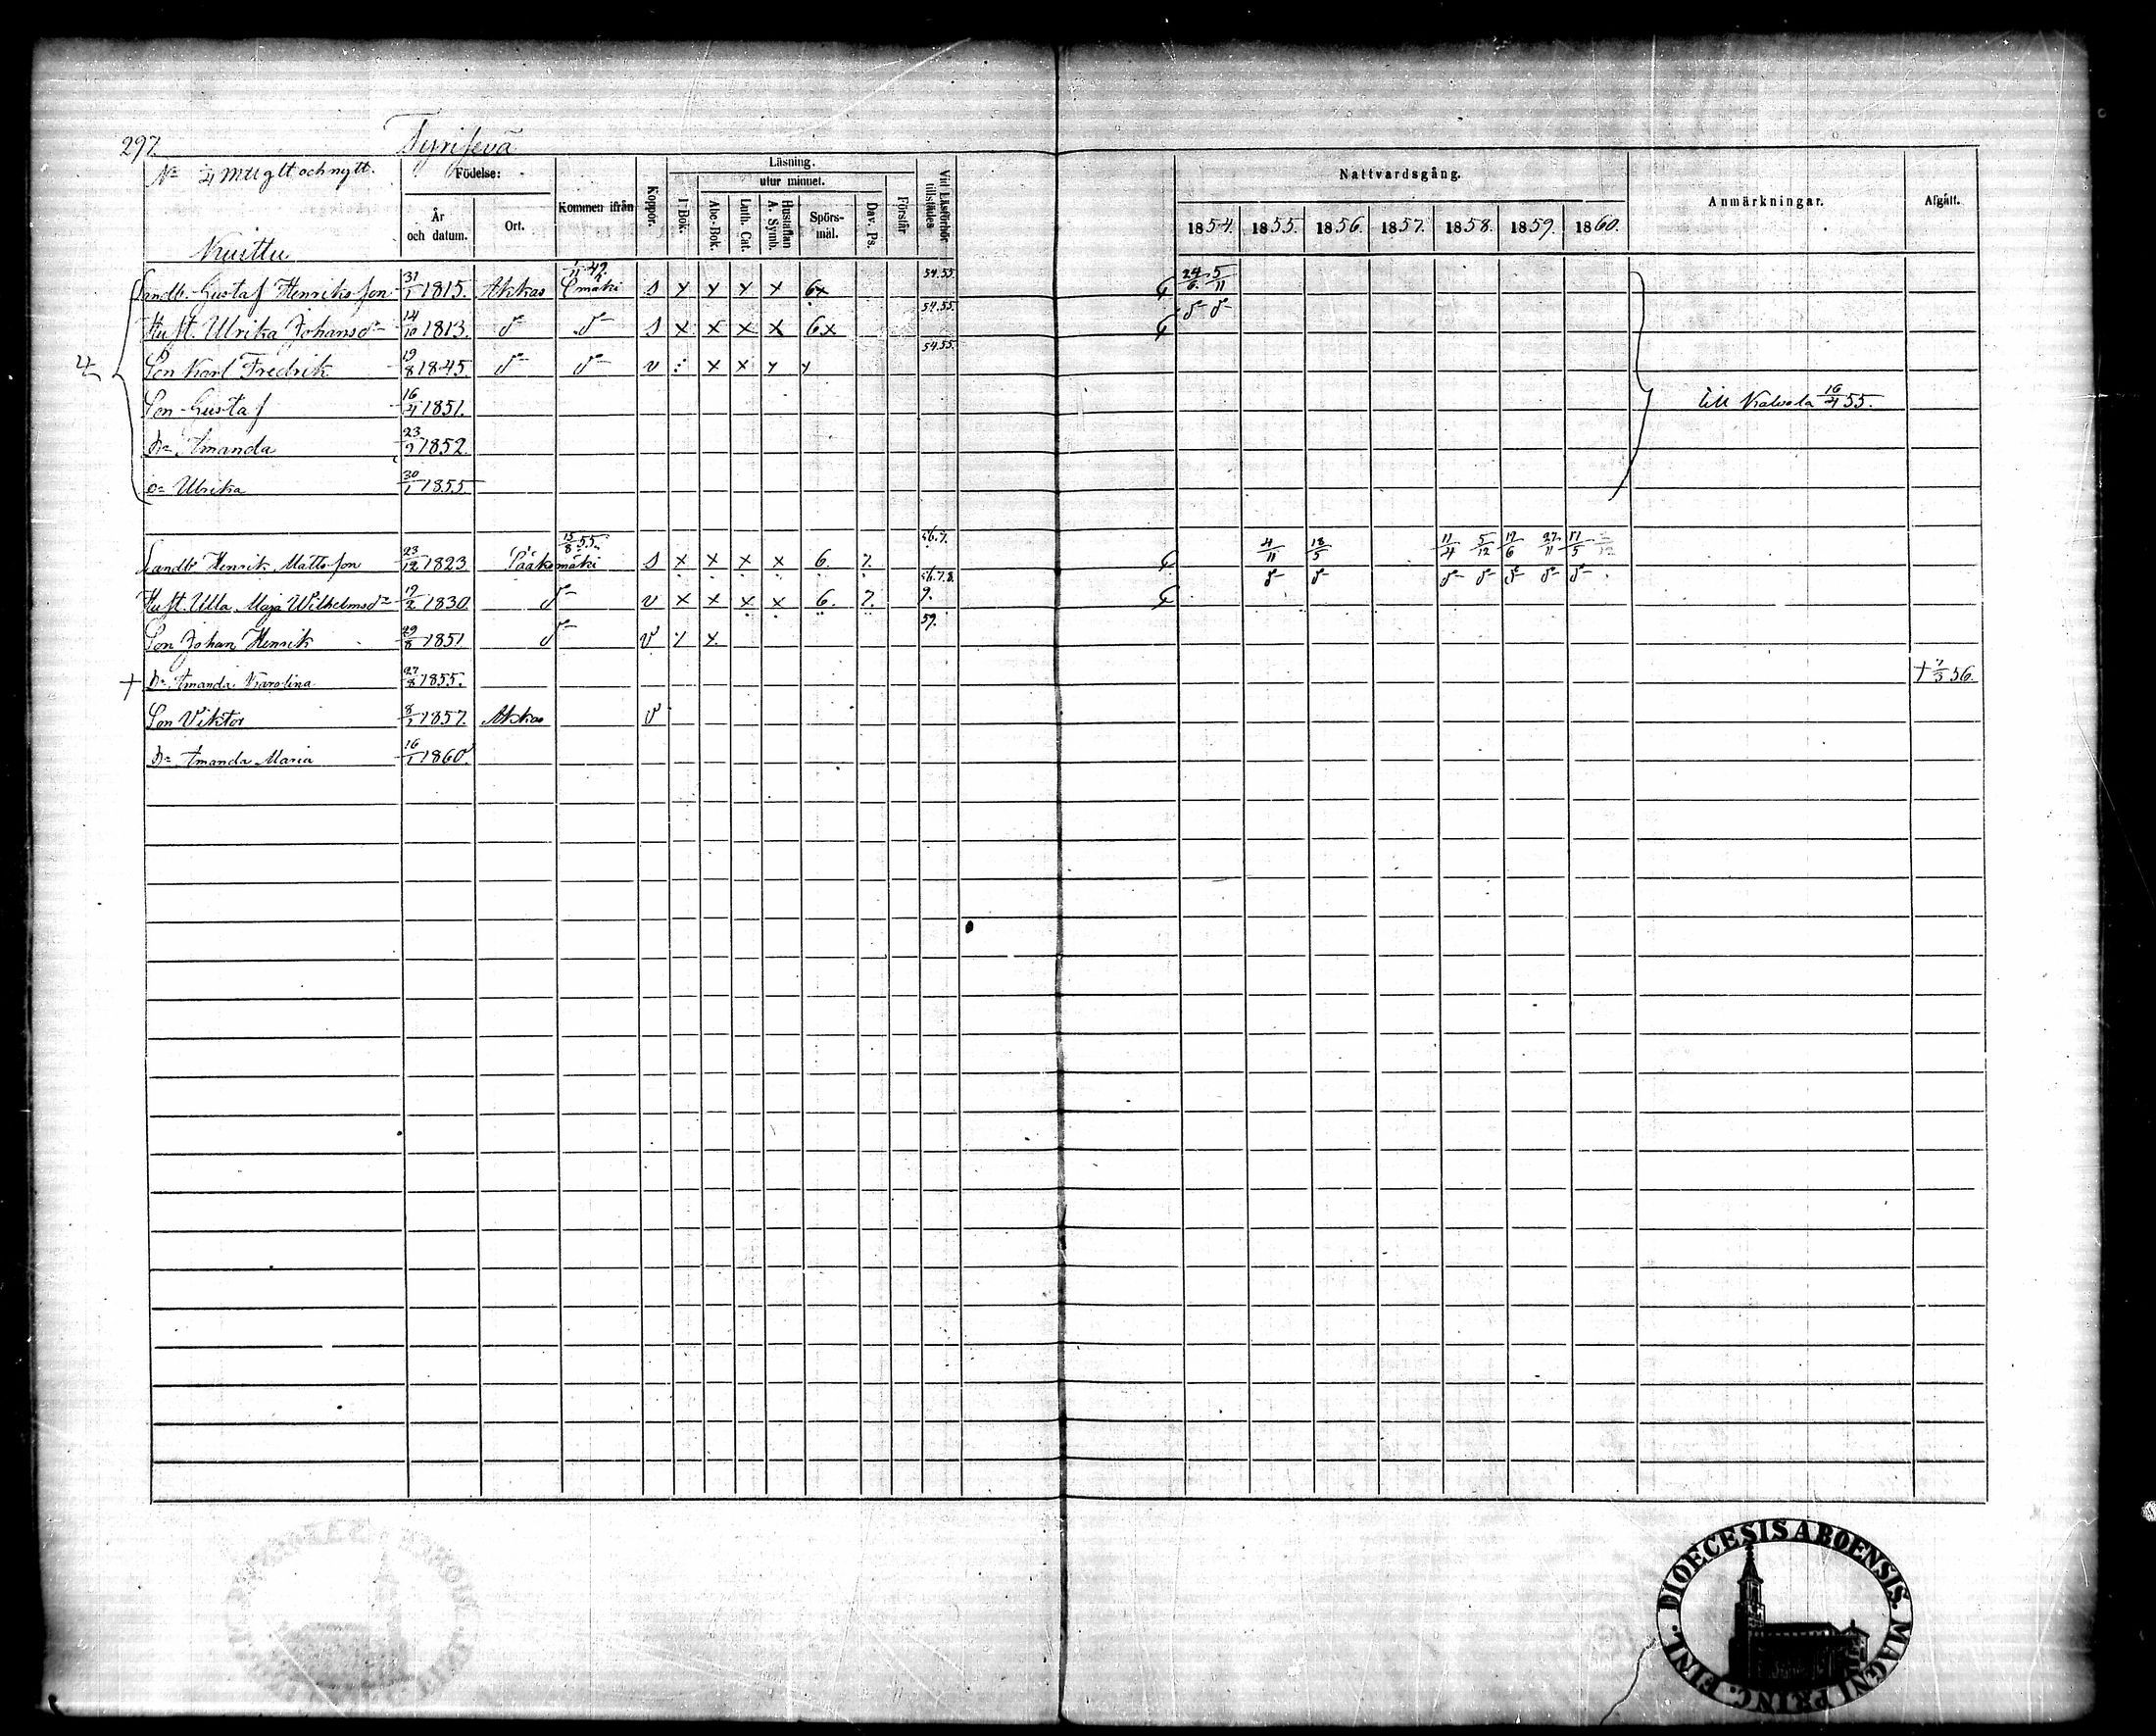 297. Tyrisevä
No 4 Mtl gltt och nytt.
Födelse:
År och datum.
Ort.
Kommen ifrån
Koppor.
Läsning.
utur minnet.
I Bok.
Abc-Bok.
Luth. Cat.
Hustaflan A. Symb.
Spörsmål.
Dav. Ps.
Förstår
Vid Läsförhör tillstädes
Nattvardsgång.
1854. 1855. 1856. 1857. 1858. 1859. 1860.
Anmärkningar.
Afgått.
Kuittu
Landb. Gustaf Henriksson 31/1 1815. Akkas mäki s x x x x 6x 54.55. 24/6 5/11
Hust. Ulrika Johansdr 14/10 1813. do do s x x x x 6x 54.55. do do
Son Karl Fredrik 19/8 1845 do do v : x x x x 54.55.
Son Gustaf 16/4 1851. till Kalvola 16/4 55.
Dr Amanda 23/9 1852.
do Ulrika 30/1 1855
Landb. Henrik Mattsson 23/12 1823 Sääksmäki 15/8 55. s x x x x 6. 7. 56.7. 4/11 18/5 11/4 5/12 17/6 27/11 17/5
Hust. Ulla Maja Wilhelmsdr 17/2 1830. do v x x x x 6. 7. 56.7.8.9. do do do do do do do
Son Johan Henrik 29/8 1851 do v x 59.
+ Dr Amanda Karolina 27/8 1855. + 7/3 56.
Son Viktor 8/1 1857. Akkas v
Dr Amanda Maria 16/1 1860.
DIOECESIS ABOENSIS. MAGNI PRINC. FINL.